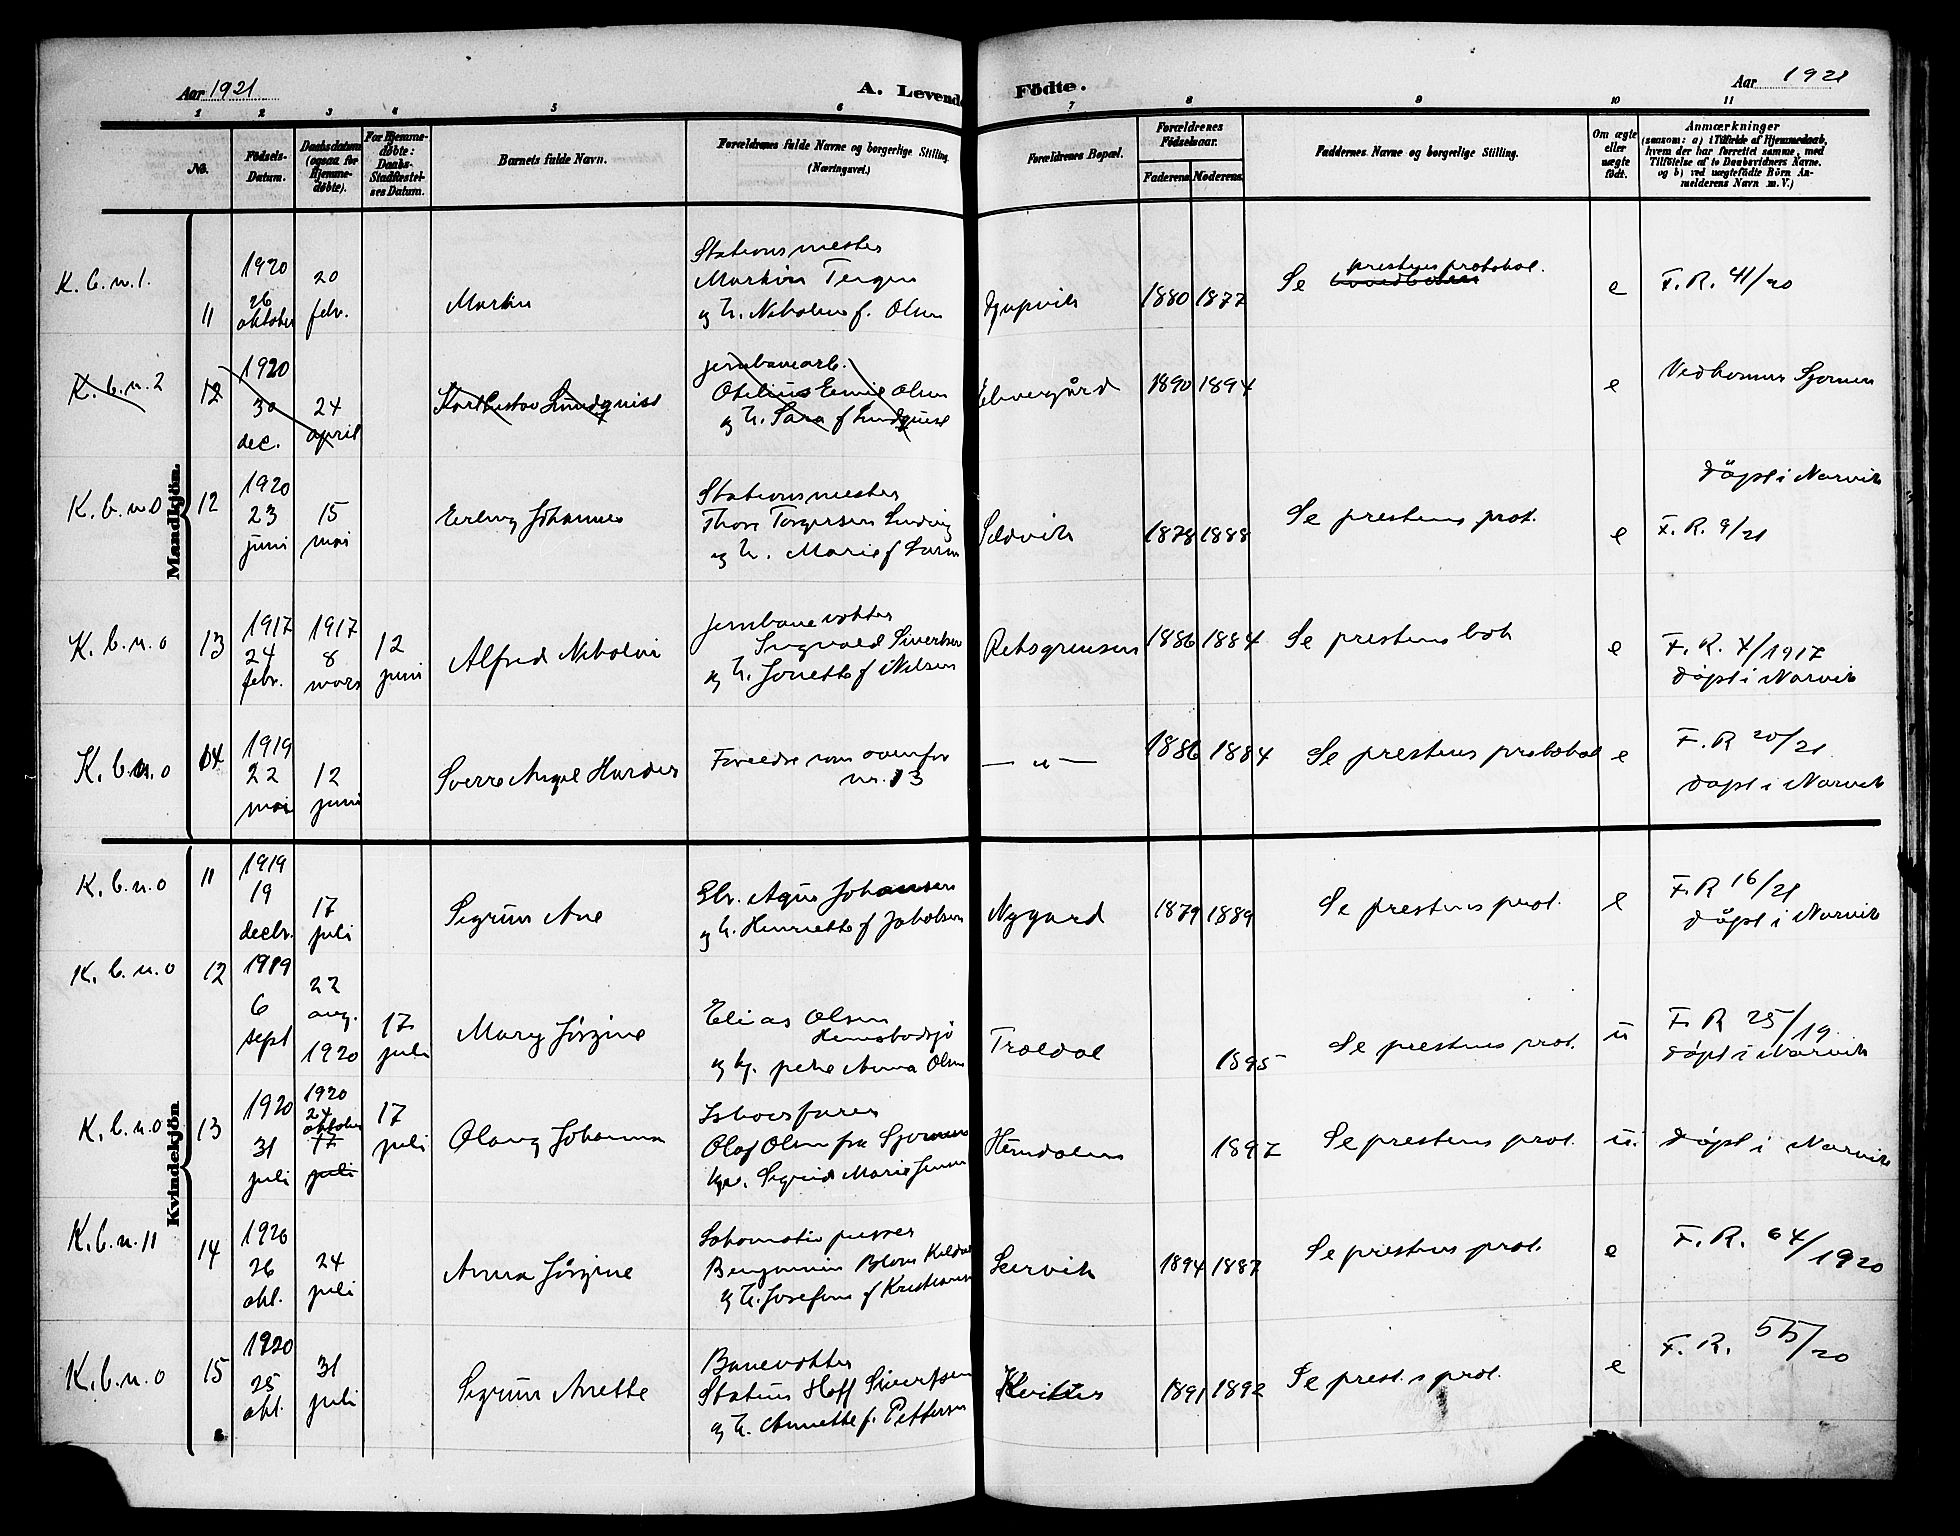 Aar 1921
A. Levende Födte.
Aar 1921
1 2 3 4 5 6 7 8 9 10 11
No.
Födsels-Datum.
Daabsdatum (ogsaa for Hjemme-døbte).
For Hjemme-døbte: Daabs-Stadfæstel-ses Datum.
Barnets fulde Navn.
Forældrenes fulde Navne og borgerlige Stilling.
(Næringsvei.)
Forældrenes Bopæl.
Forældrenes Födselsaar.
Faderens Moderens
Faddernes Navne og borgerlige Stilling.
Om ægte eller uægte födt.
Anmærkninger
(saasom: a) i Tilfælde af Hjemmedaab, hvem der har forrettet samme, med Tilföielse af to Daabsvidners Navne, og b) ved uægtefödte Börn An-melderens Navn m. V.)
Mandkjön.
K.b.n.1.
11
1920 26 oktober
20 febr.
Martin
Stationsmester
Martin
og h. f. Olsen
Djupvik
1880 1877
Se prestens protokol.
e
F.R. 41/20
K.b.n.2
12
1920 30 dec.
24 april
Karl Gustav Lundquist
jernbanearb.
Olsen
og h. Sara f Lundquist
Elvegård
1890 1894
e
Vedkommer
K.b.n.0
12
1920 23 juni
15 mai
Erling Johannes
Stationsmester
Thore Torgersen
og h. Marie f
Sildvik
1878 1888
Se prestens prot.
e
døpt i Narvik
F.R. 9/21
K.b.n.0
13
1917 24 febr.
1917 8 mars
12 juni
Alfred Nikolai
jernbanevokter
Ingvald Sivertsen
og h. Jonette f Nilsen
Riksgrensen
1886 1884
Se prestens bok
e
F.R. 7/1917
døpt i Narvik
K.b.n.0
14
1919 22 mai
12 juni
Sverre Harder
Foreldre som ovenfor
nr. 13
— „ —
1886 1884
Se prestens protokol
e
F.R 20/21
døpt i Narvik
Kvindekjön
K.b.n.0
11
1919 19 decbr.
17 juli
Sigrun Ane
Johansen
og h. Henriette f Jakobsen
Nygard
1879 1889
Se prestens prot.
e
F.R 16/21
døpt i Narvik
K.b.n.0
12
1919 6 sept
22 aug. 1920
17 juli
Mary Jørgine
Elias Olsen
og pike Anna Olsen
Trældal
1895
Se prestens prot.
u
F.R 25/19
døpt i Narvik
K.b.n.0
13
1920 31 juli
1920 24 oktober 17 juli
17 juli
Olaug Johanna
Ishavsfarer
Olaf Olsen fra
Sigrid Marie
Hundalen
1897
Se prestens prot.
u.
døpt i Narvik
K.b.n.11
14
1920 26 okt.
24 juli
Anna Jørgine
Lokomotivpusser
Benjamin
og h. Josefine f Kristiansen
Leirvik
1894 1887
Se prestens prot.
e
F.R. 64/1920
K.b.n.0
15
1920 25 okt.
31 juli
Sigrun Anette
Banevokter
Hoff Sivertsen
og h. Annette f. Pettersen
1891 1892
Se prest.s prot.
e
F.R. 55/20